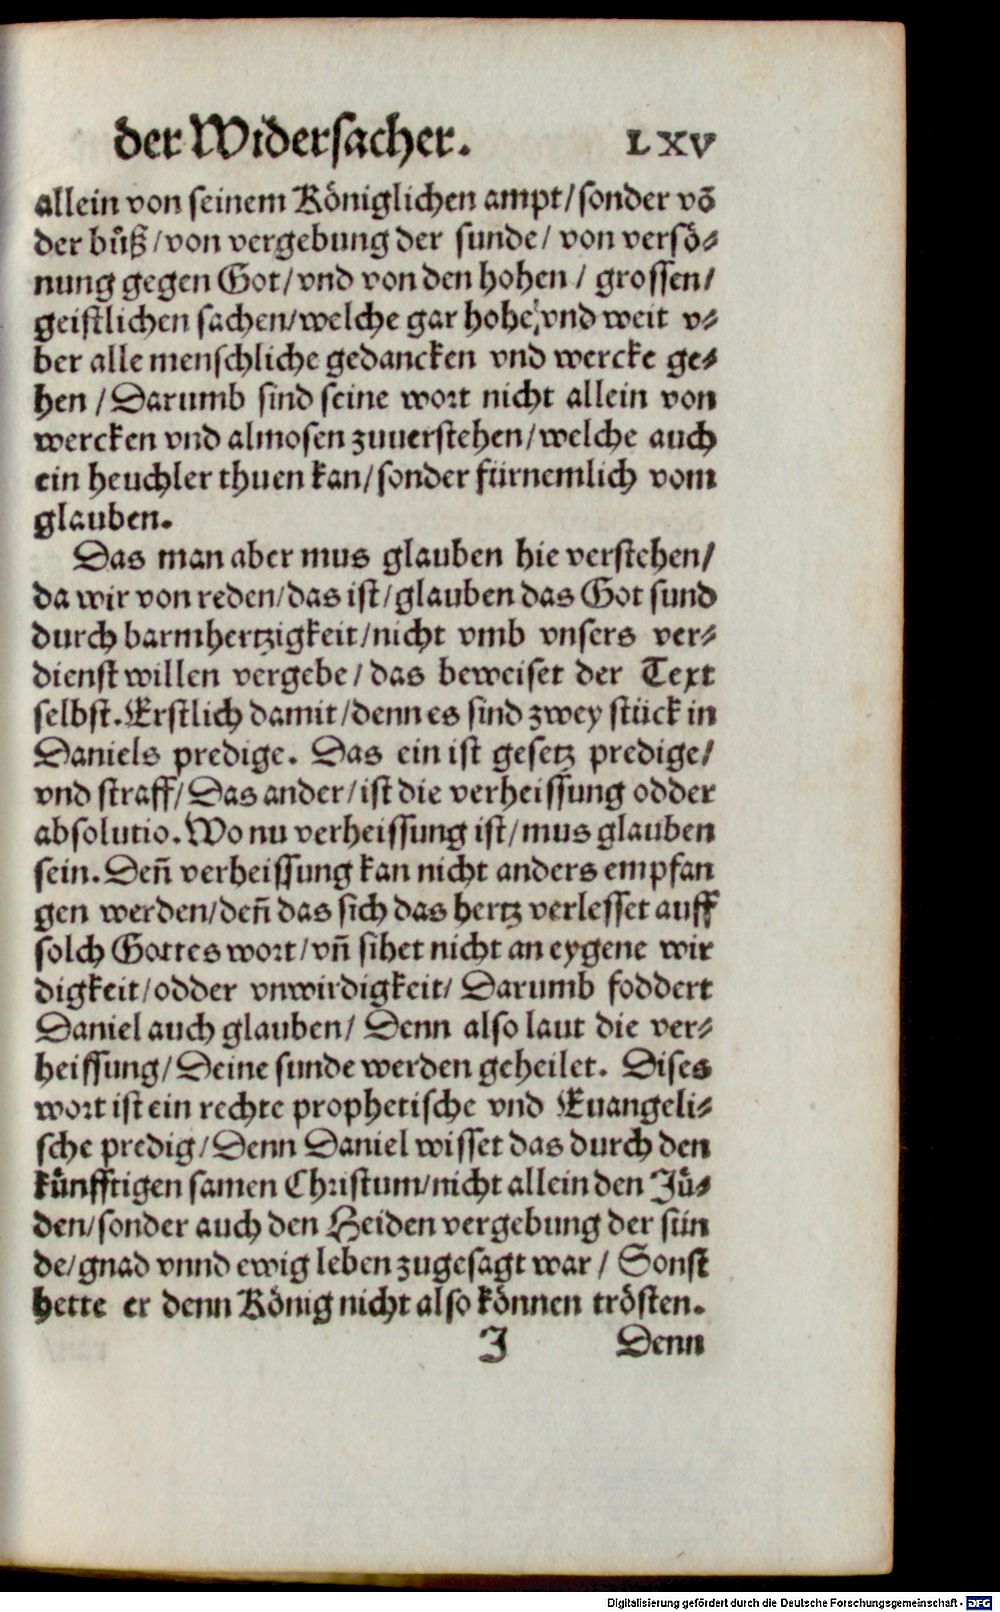 der Widersacher. LXV
allein von seinem Königlichen ampt/sonder võ
der bůß/von vergebung der sunde/ von versö-
nung gegen Got/vnd von den hohen/ grossen/
geistlichen sachen/welche gar hohe/vnd weit v-
ber alle menschliche gedancken vnd wercke ge-
hen/Darumb sind seine wort nicht allein von
wercken vnd almosen zuuerstehen/welche auch
ein heuchler thuen kan/sonder fürnemlich vom
glauben.
Das man aber mus glauben hie verstehen/
da wir von reden/das ist/glauben das Got sund
durch barmhertzigkeit/nicht vmb vnsers ver-
dienst willen vergebe/das beweiset der Text
selbst.Erstlich damit/denn es sind zwey stück in
Daniels predige. Das ein ist gesetz predige/
vnd straff/Das ander/ist die verheissung odder
absolutio.Wo nu verheissung ist/mus glauben
sein.Deñ verheissung kan nicht anders empfan
gen werden/deñ das sich das hertz verlesset auff
solch Gottes wort/vñ sihet nicht an eygene wir
digkeit/odder vnwirdigkeit/ Darumb foddert
Daniel auch glauben/ Denn also laut die ver-
heissung/Deine sunde werden geheilet. Dises
wort ist ein rechte prophetische vnd Euangeli-
sche predig/Denn Daniel wisset das durch den
kůnfftigen samen Christum/nicht allein den Jů-
den/sonder auch den Heiden vergebung der sün
de/gnad vnnd ewig leben zugesagt war/ Sonst
hette er denn König nicht also können trösten.
J Denn
Digitalisierung gefördert durch die Deutsche Forschungsgemeinschaft - DFG